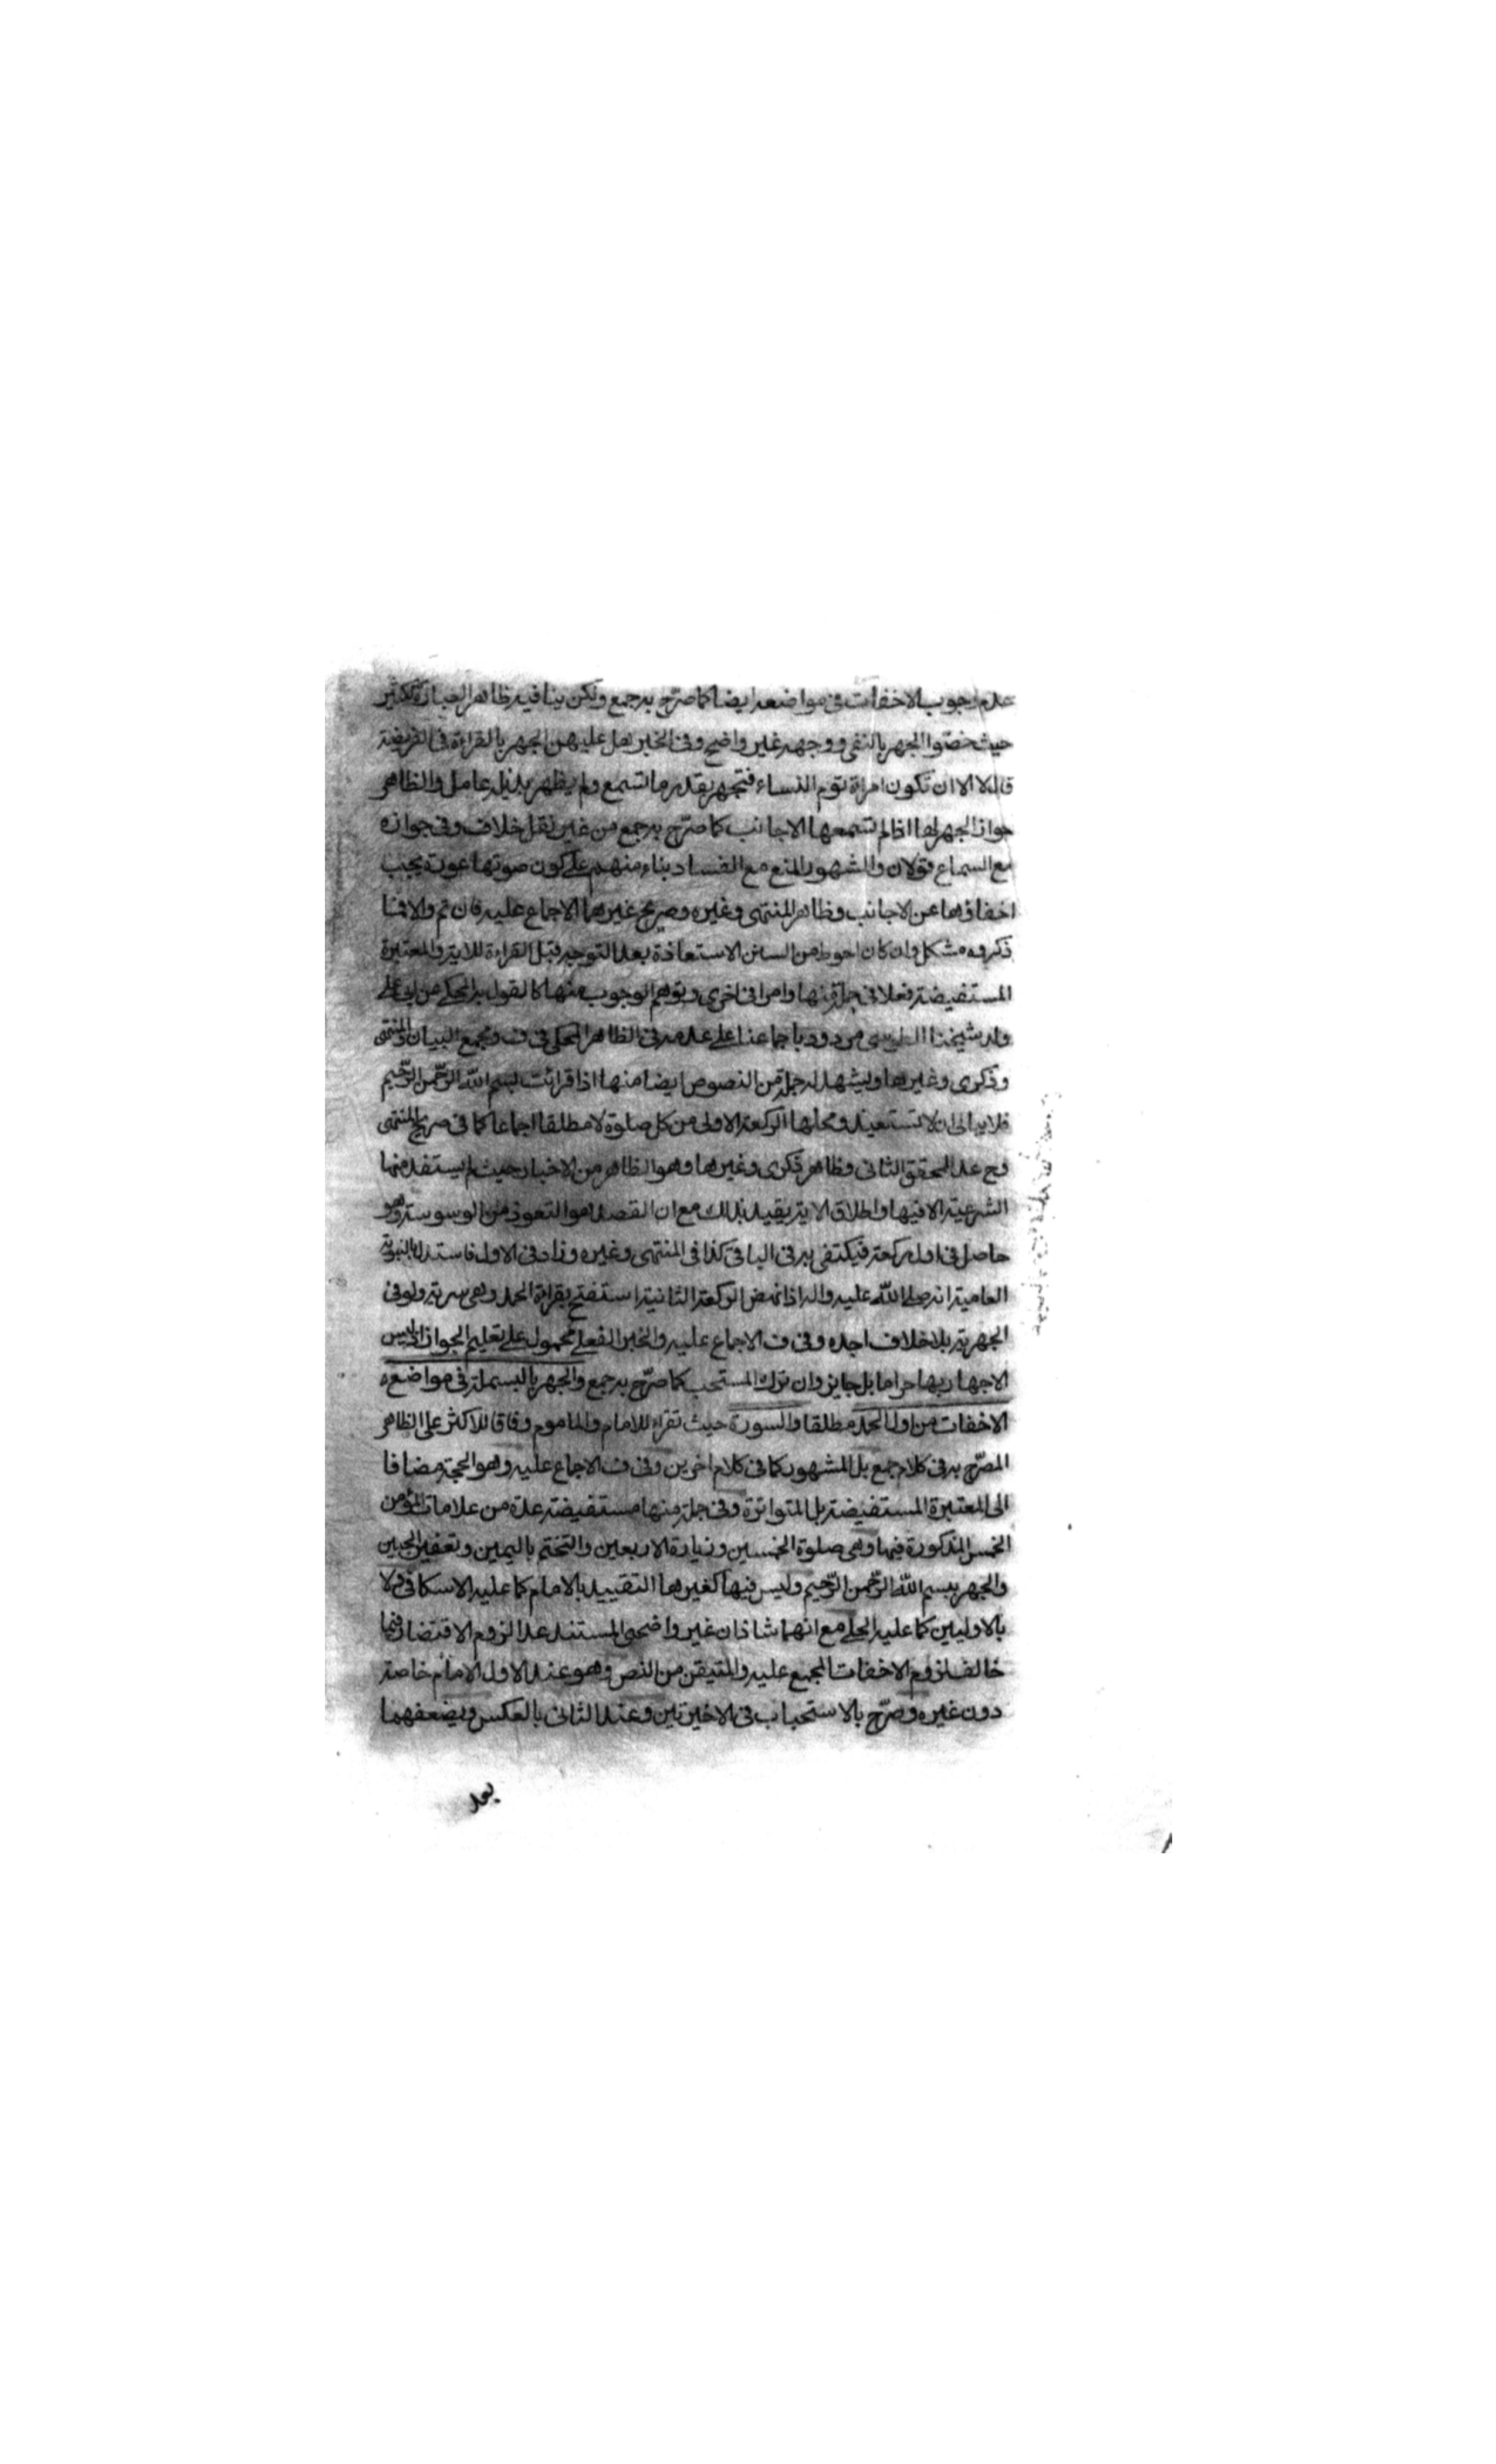 عدم وجوب الاخفات فى مواضعه ايضا كما صرّح به جمع ولكن ينافيه ظاهر العبارة لكثير
حيث خصّوا الجهر بالنفى ووجهه غير واضح وفى الخبر هل عليهن الجهر بالقراءة فى الفريضة
قال لا الا ان تكون امراة تؤم النساء فتجهر بقدر ما تسمع ولم يظهر بذيله عامل والظاهر
جواز الجهر لها اذا لم تسمعها الاجانب كما صرّح به جمع من غير نقل خلاف وفى جوازه
مع السماع قولان والمشهور المنع مع الفساد بناء منهم على كون صوتها عورة يجب
اخفاؤها عن الاجانب وظاهر المنتهى وغيره وصريح غيرهما الاجماع عليه فان تم والا فما
ذكروه مشكل وان كان احوط من السنن الاستعاذة بعد التوجه قبل القراءة للاية والمعتبرة
المستفيضة فعلا فى جملة منها وامرا فى اخرى وتوهم الوجوب منها كالقول به المحكى من ابى على
ولد شيخنا الطوسى مردود باجماعنا على عدمه فى الظاهر المحكى فى ف ومجمع البيان والمنتهى
وذكرى وغيرها ويشهد له جملة من النصوص ايضا منها اذا قرات بسم الله الرّحمن الرّحيم
فلا يبالى ان لا تستعيذ ومحلها الركعة الاولى من كل صلوة لا مطلقا اجماعا كما فى صريح المنتهى
وح عند المحقق الثانى وظاهر ذكرى وغيرها وهو الظاهر من الاخبار حيث لم يستفد منها
الشرعية الا فيها واطلاق الاية يقيد بذلك مع ان القصد هو التعوذ من الوسوسة وهو
حاصل فى اول ركعة فيكتفى به فى الباقى كذا فى المنتهى وغيره وزاد فى الاول فاستدل بالنبوية
العامية انه صلى الله عليه واله اذا نهض الركعة الثانية استفتح بقراءة الحمد وهى سرية ولو فى
الجهرية بلا خلاف اجده وفى ف الاجماع عليه والخبر الفعلى محمول على تعليم الجواز اذ ليس
الاجهار بها حراما بل جايز وان ترك المستحب كما صرّح به جمع والجهر بالبسملة فى مواضع
الاخفات من اول الحمد مطلقا والسورة حيث تقراء للامام والماموم وفاقا للاكثر على الظاهر
المصرّح به فى كلام جمع بل المشهور كما فى كلام اخرين وفى ف الاجماع عليه وهو الحجة مضافا
الى المعتبرة المستفيضة بل المتواترة وفى جملة منها مستفيضة عدّه من علامات المؤمن
الخمس المذكورة فيها وهى صلوة الخمسين وزيارة الاربعين والتختم باليمين وتعفير الجبين
والجهر ببسم الله الرّحمن الرّحيم وليس فيها كغيرها التقييد بالامام كما عليه الاسكافى ولا
بالاوليين كما عليه الحلى مع انهما شاذان غير واضحى المستند عدا لزوم الاقتضار فيما
خالف لزوم الاخفات المجمع عليه والمتيقن من النص وهو عند الاول الامام خاصة
دون غيره وصرّح بالاستحباب فى الاخيرتين وعند الثانى بالعكس ويضعفهما
بعد